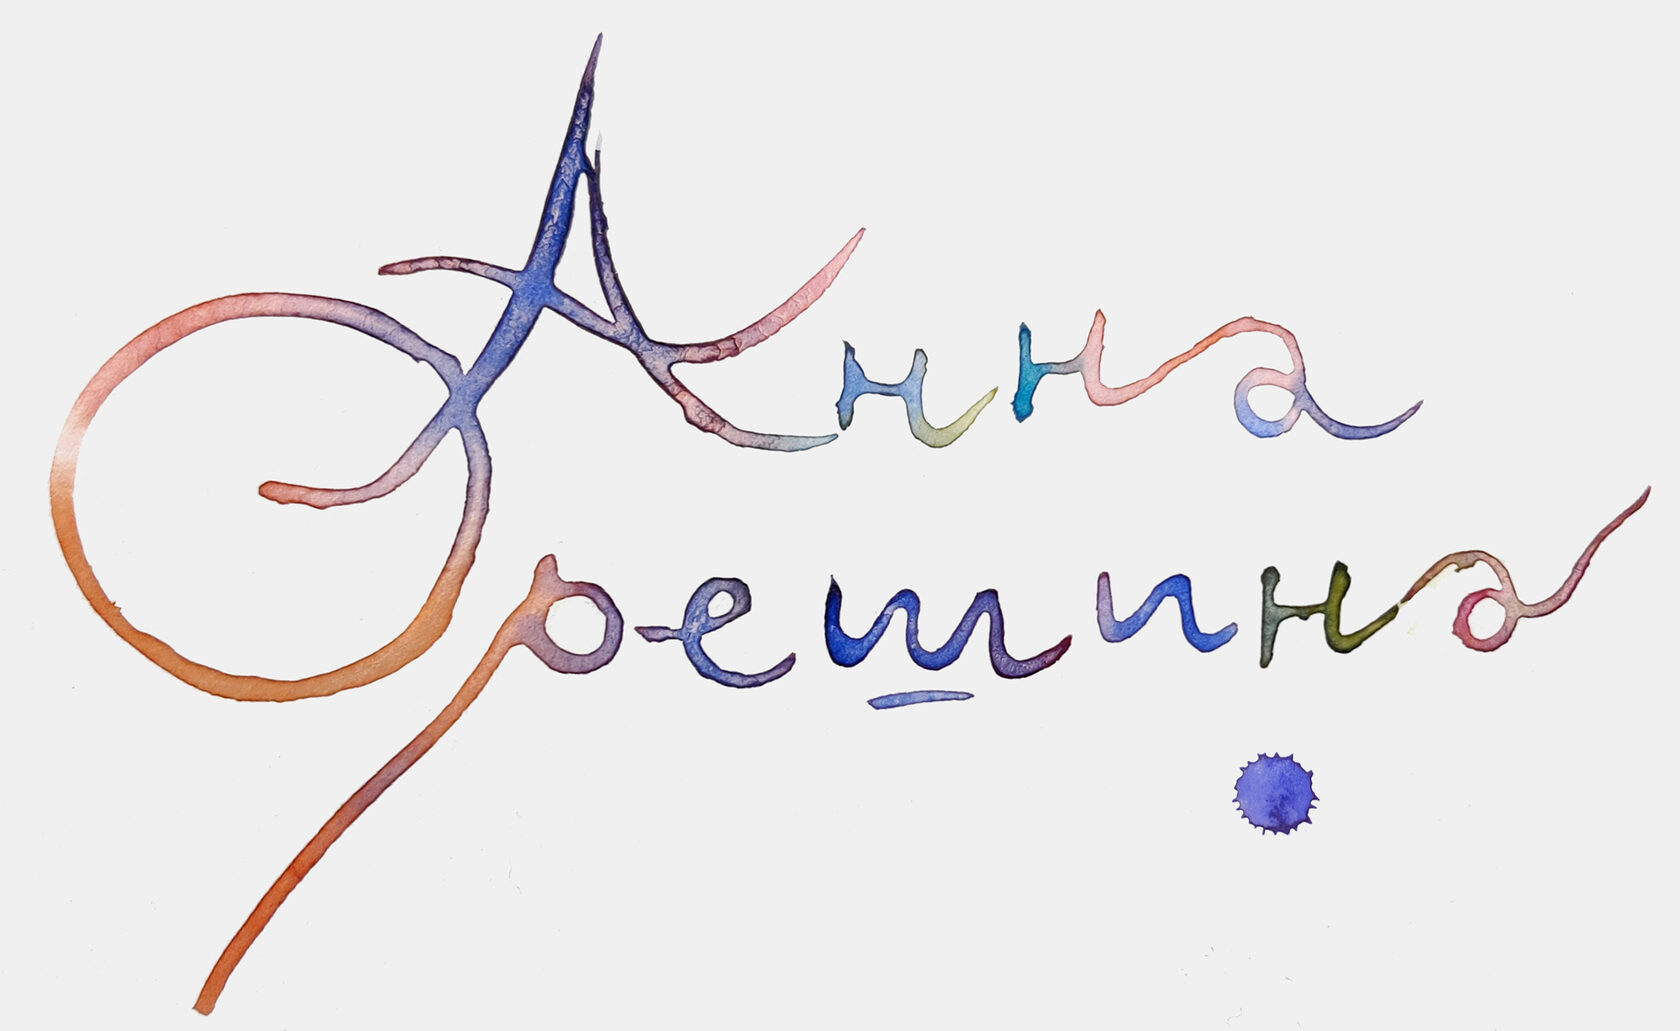 Анна
Орешина